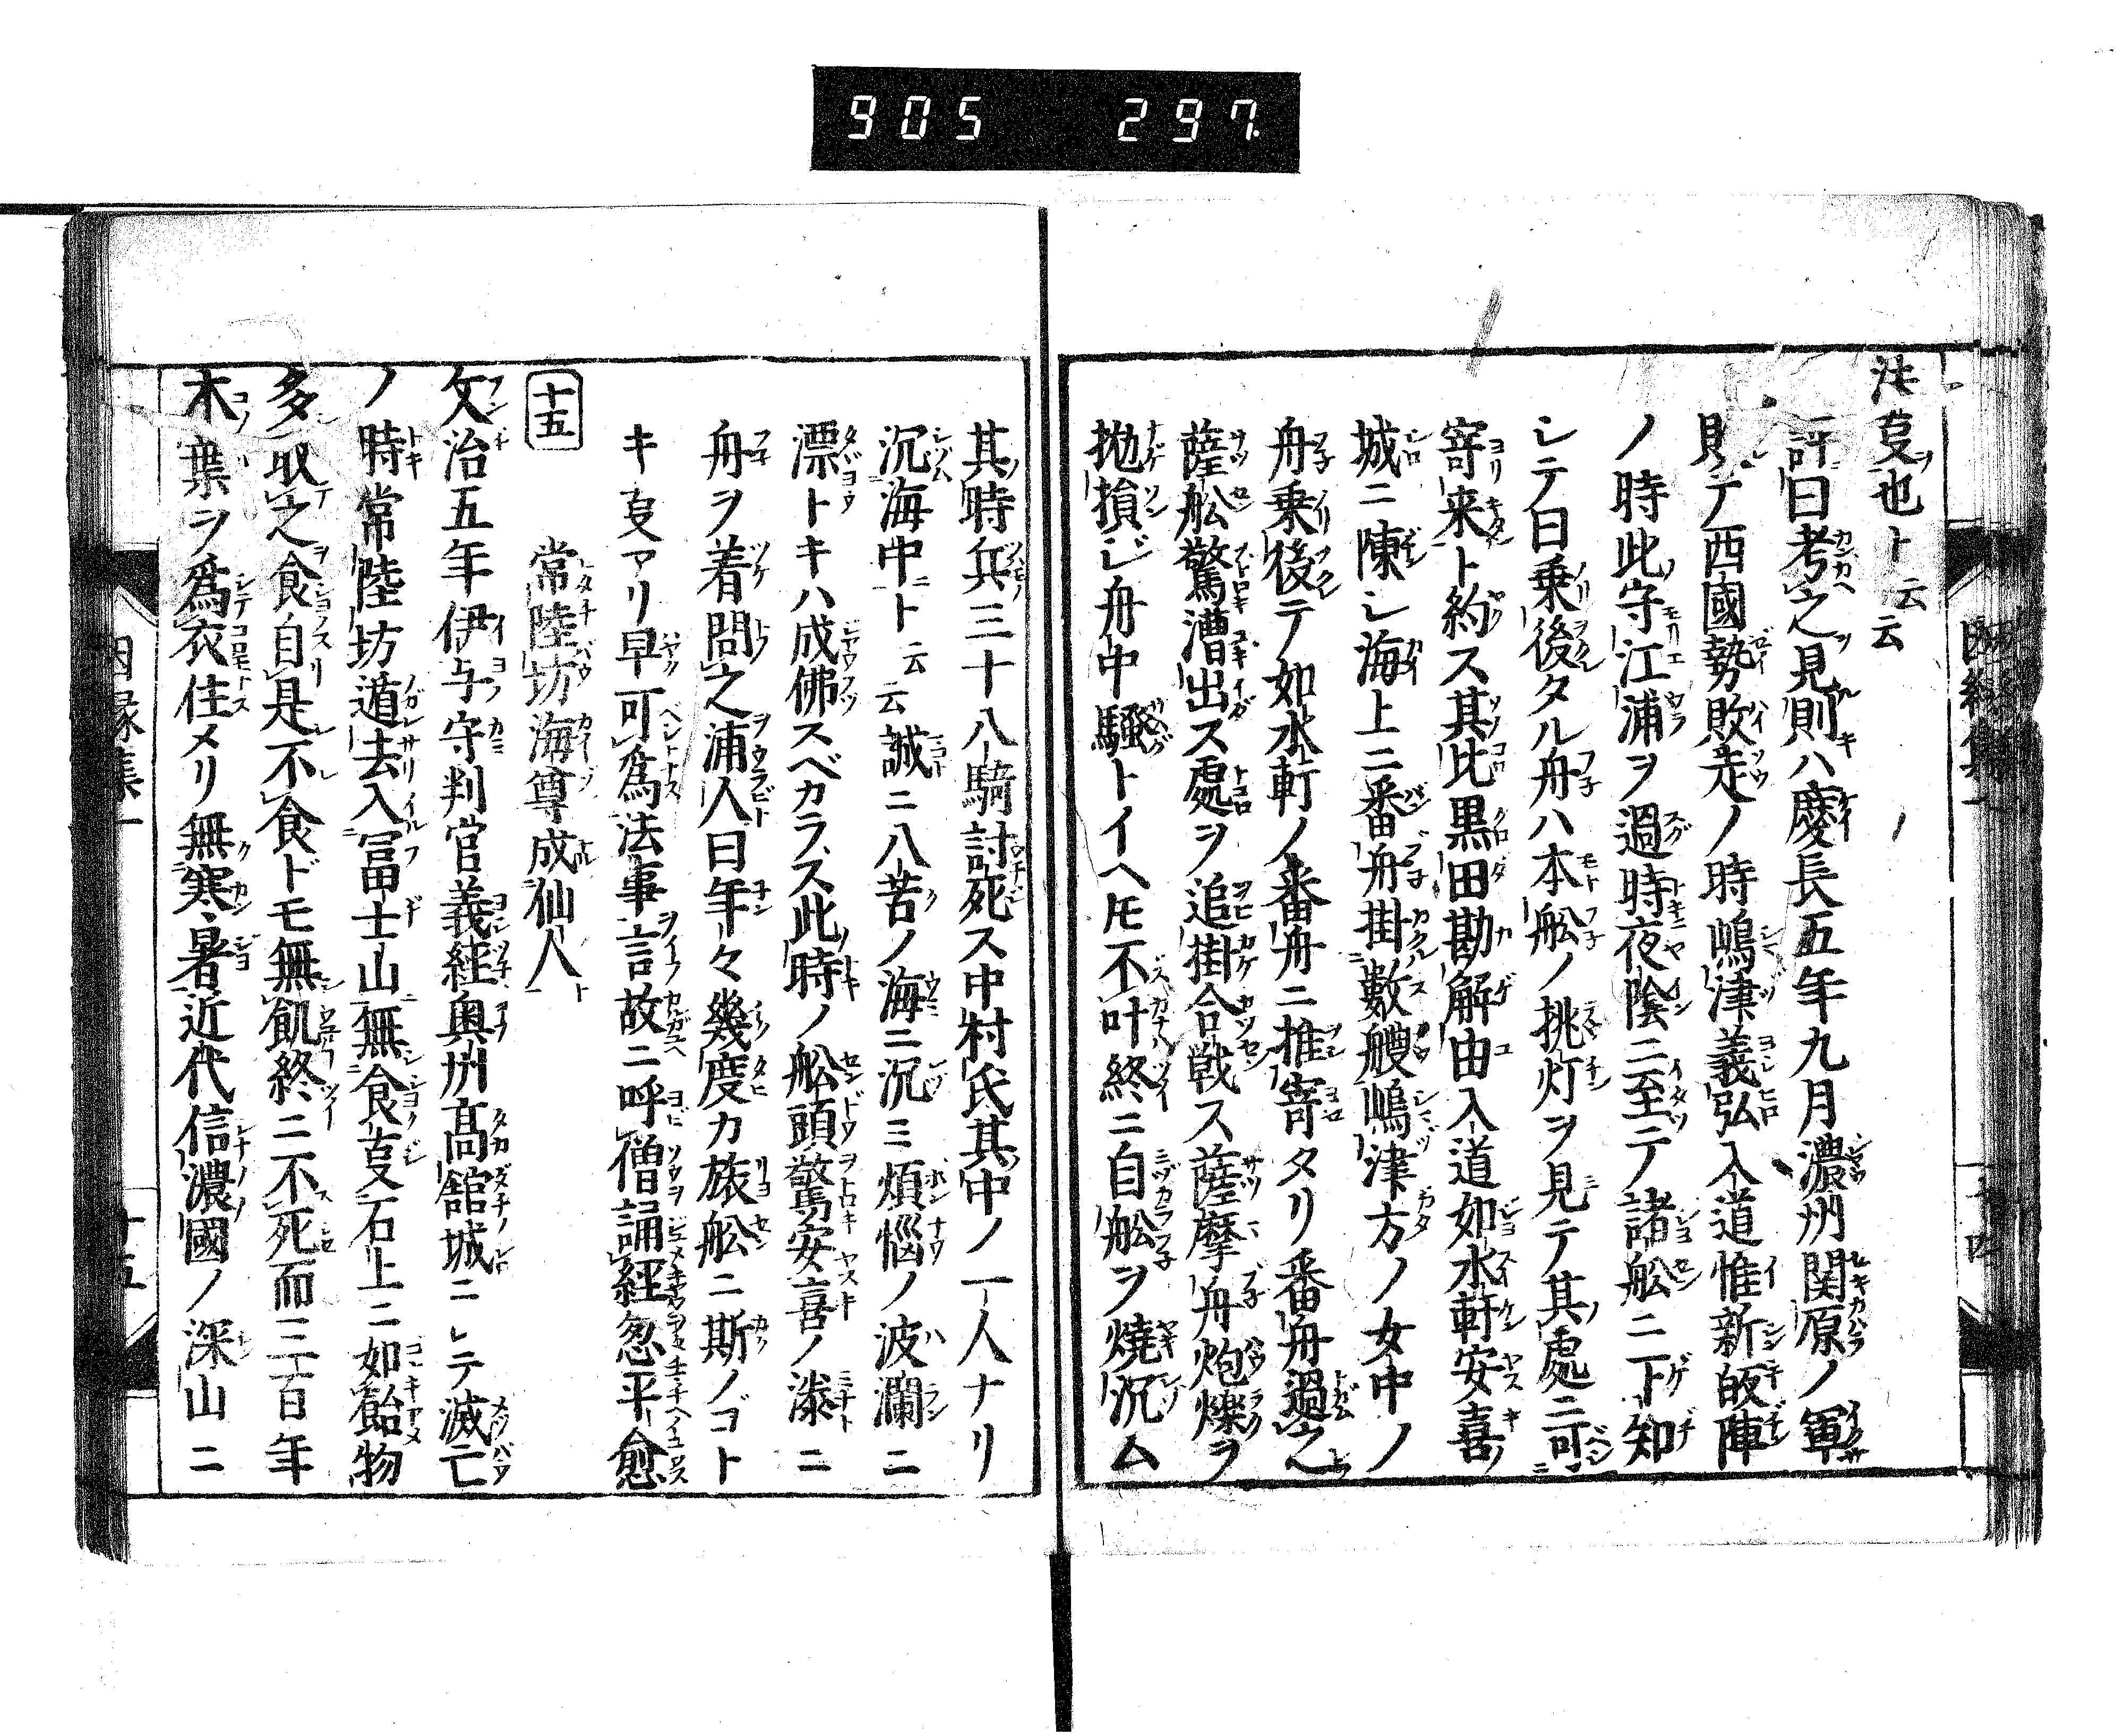 905 297
法㕝也ト云云
評曰考之見則ハ慶長五年九月濃州関原ノ軍
テ西國勢敗走ノ時嶋津義弘入道惟新皈陣
ノ時此守江浦ヲ過時夜陰ニ至テ諸舩ニ下知
シテ曰乗後タル舟ハ本舩ノ挑灯ヲ見テ其處ニ可
寄来ト約ス其比黒田勘解由入道如水軒安喜
城ニ陳シ海上ニ番舟掛數艘嶋津方ノ女中ノ
舟乗後テ如水軒ノ番舟ニ推寄タリ番舟過之
薩舩驚漕出ス處ヲ追掛合戦ス薩摩舟炮爍ヲ
抛損シ舟中騒トイヘ𪜈不叶終ニ自舩ヲ焼沉ム
其時兵三十八騎討死ス中村氏其中ノ一人ナリ
沉海中ト云云誠ニ八苦ノ海ニ沉ミ煩惱ノ波瀾ニ
漂トキハ成佛スベカラス此時ノ舩頭驚安喜ノ湊ニ
舟ヲ着問之浦人曰年々幾度カ旅舩ニ斯ノゴト
キ㕝アリ早可為法事言故ニ呼僧誦経忽平愈
十五
常陸坊海尊成仙人
文治五年伊与守判官義経奥州髙舘城ニシテ滅亡
ノ時常陸坊遁去入冨士山無食㕝石上ニ如飴物
多取之食自是不食ドモ無飢終ニ不死而三百年
木葉ヲ為衣住メリ無寒暑近代信濃國ノ深山ニ
因縁集一
十五